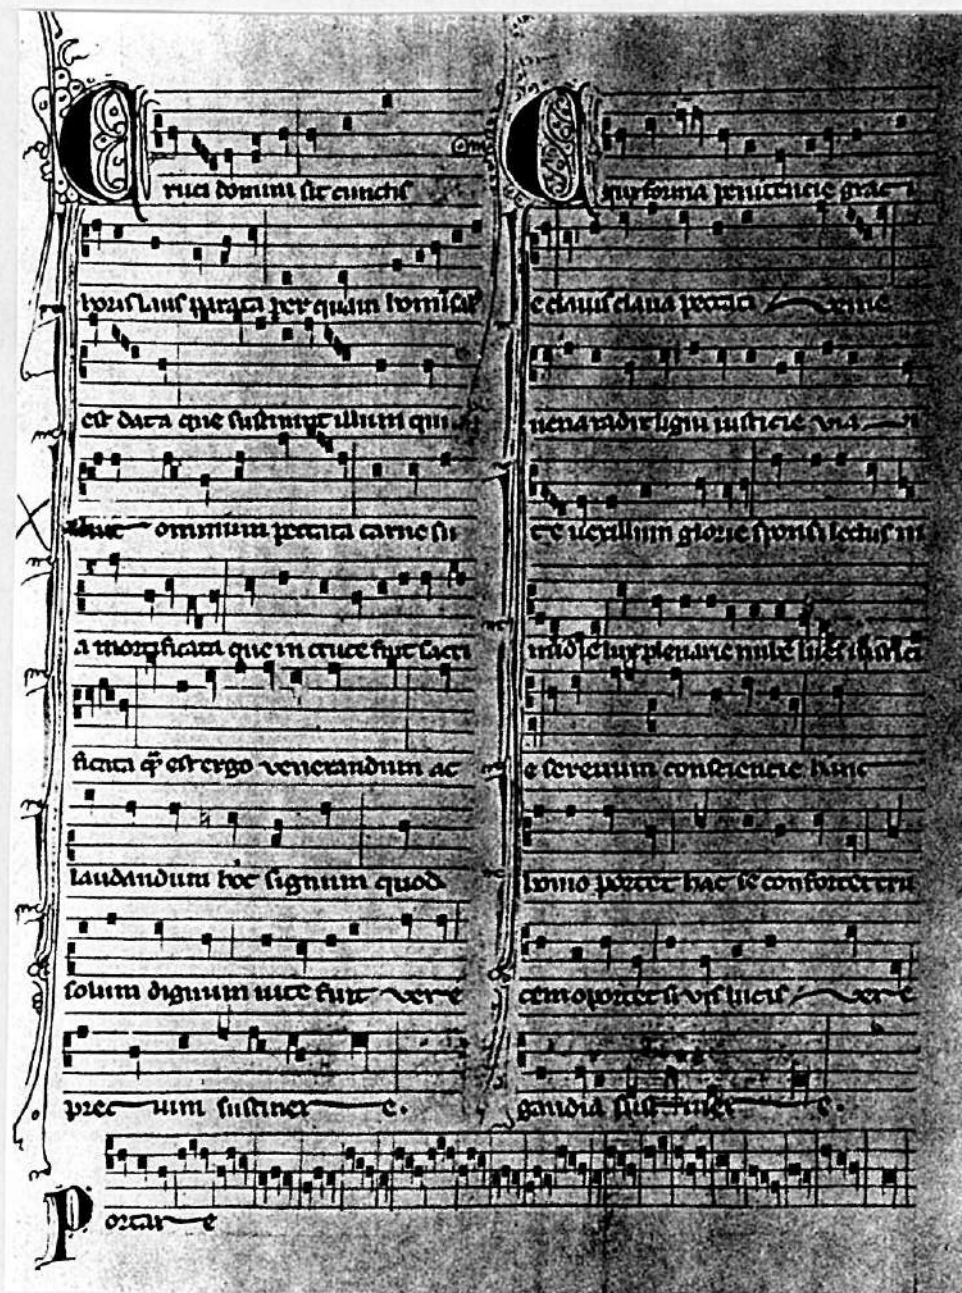 Cruci domini sit cunctis
horis laus parata per quam
est data que sustinuit illum qui
omnium peccata carne su
a mortificata que in cruce fuit sacri
ficata qr est ergo venerandum ac
laudandum hoc signum quod
solum dignum vite fuit vere
precium sustinere.
Crux forma penitencie
e clavis clava peccata
vena radix ligni iusticie via
vexillum glorie sponsi lectus in
lux plenarie
e serenum consciencie hunc
homo portet hac se confortet cru
cem oportet si vis lucis vere
gaudia sustinere.
Portare